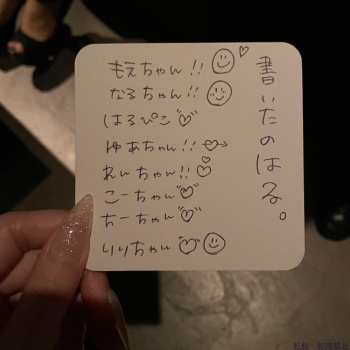 書いたのはる。
もえちゃん!!
なるちゃん!!
はるぴこ
ゆあちゃん!!
れいちゃん!!
こーちゃん
ちーちゃん
りりちゃん
転載・転用禁止